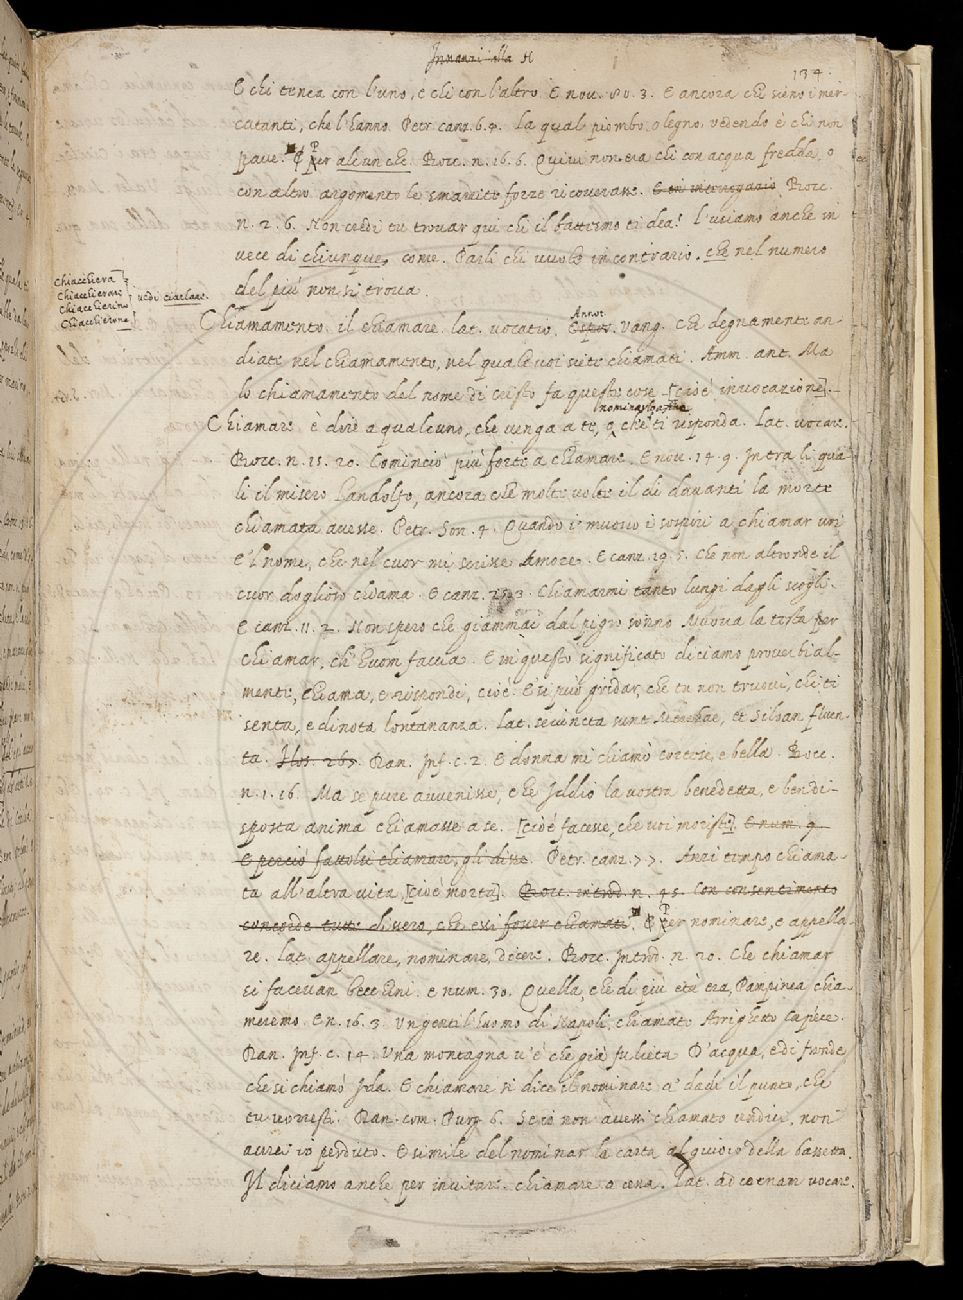 Innanzi alla H
134.
E chi tenea con l'uno, e chi con l'altro. E nov. 80. 3. E ancora chi sieno i mer-
catanti, che l'hanno. Petr. canz. 6. 4. la qual piombo, o legno, vedendo è chi non
pave. ¶ Per alcun che. Bocc. n. 16. 6. Quivi non era chi con acqua fredda, o
con altro argomento le smarrite forze ricoverasse. E chi interrogario Bocc.
n. 2. 6. Non credi tu trovar qui chi il battesimo ti dea? l'usiamo anche in
vece di chiunque, come. Parli chi vuole in contrario. che nel numero
del piú non si trova.
Chiacchiera
Chiacchierare
Chiacchierino
Chiacchierone
vedi ciarlare.
Chiamamento. il chiamare. lat. vocatio. Espos. Annot. Vang. che degnamente an-
diate nel chiamamento, nel quale voi siete chiamati. Amm. ant. Ma
lo chiamamento del nome di cristo fa queste cose [cioè invocazione].
Chiamare è dire a qualcuno, che venga a te, o che nominandolo ti risponda. Lat. vocare.
Bocc. n. 15. 20. Cominciò piú forte a chiamare. E nov. 14. 9. Intra li qua-
li il misero Landolfo, ancora che molte volte il dì davanti la morte
chiamata avesse. Petr. Son. 4. Quando i' muovo i sospiri a chiamar voi
E'l nome, che nel cuor mi scrisse Amore. E canz. 19. 5. Che non altronde il
cuor doglioso chiama. E canz. 25. 3. Chiamarmi tanto lungi dagli scogli.
E canz. 11. 2. Non spero che giammai dal pigro sonno Muova la testa per
chiamar, ch'huom faccia. E in questo significato diciamo proverbial-
mente, chiama, e rispondi, cioè. E' si può gridar, che tu non truovi, chi ti
senta, e dinota lontananza. Lat. seiuncta sunt et Siloan fluen-
ta. Flos. 267. Dan. Inf. c. 2. E donna mi chiamò cortese, e bella. Bocc.
n. 1. 16. Ma se pure avvenisse, che Iddio la vostra benedetta, e ben di-
sposta anima chiamasse a se. [cioè facesse, che voi moriste]. E num. 9
E perciò fattolsi chiamare, gli disse. Petr. canz. 77. Anzi tempo chiama-
ta all'altra vita, [cioè morta]. Bocc. introd. n. 45. Con consentimento
concorde tutte dissero, che essi fosser chiamati. ¶ Per nominare, e appella-
re. lat. appellare, nominare, dicere. Bocc. Introd. n. 20. Che chiamar
si facevan beccchini. e num. 30. Quella, che di piú età era, Pampinea chia-
meremo. E n. 16. 3. Un gentil'huomo di Napoli, chiamato Arrighetto Capece.
Dan. Inf. c. 14. Una montagna v'è che già fu lieta D'acque, e di fronde,
che si chiamò Ida. E chiamare si dice il nominare a' dadi il punto, che
tu vorresti. Dan. com. Purg. 6. Se io non avessi chiamato undici, non
avrei io perduto. E simile del nominar la carta al giuoco della bassetta.
Il diciamo anche per invitare. chiamare a cena. Lat. ad coenam vocare.